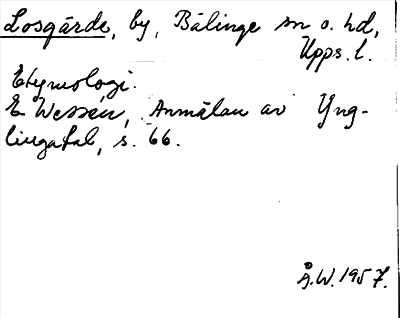 Losgärde, by, Bälinge sn o. hd,
Upps. l.
Etymologi.
E. Wessén, Anmälan av Yng-
lingatal, s. 66.
Å.W. 1957.